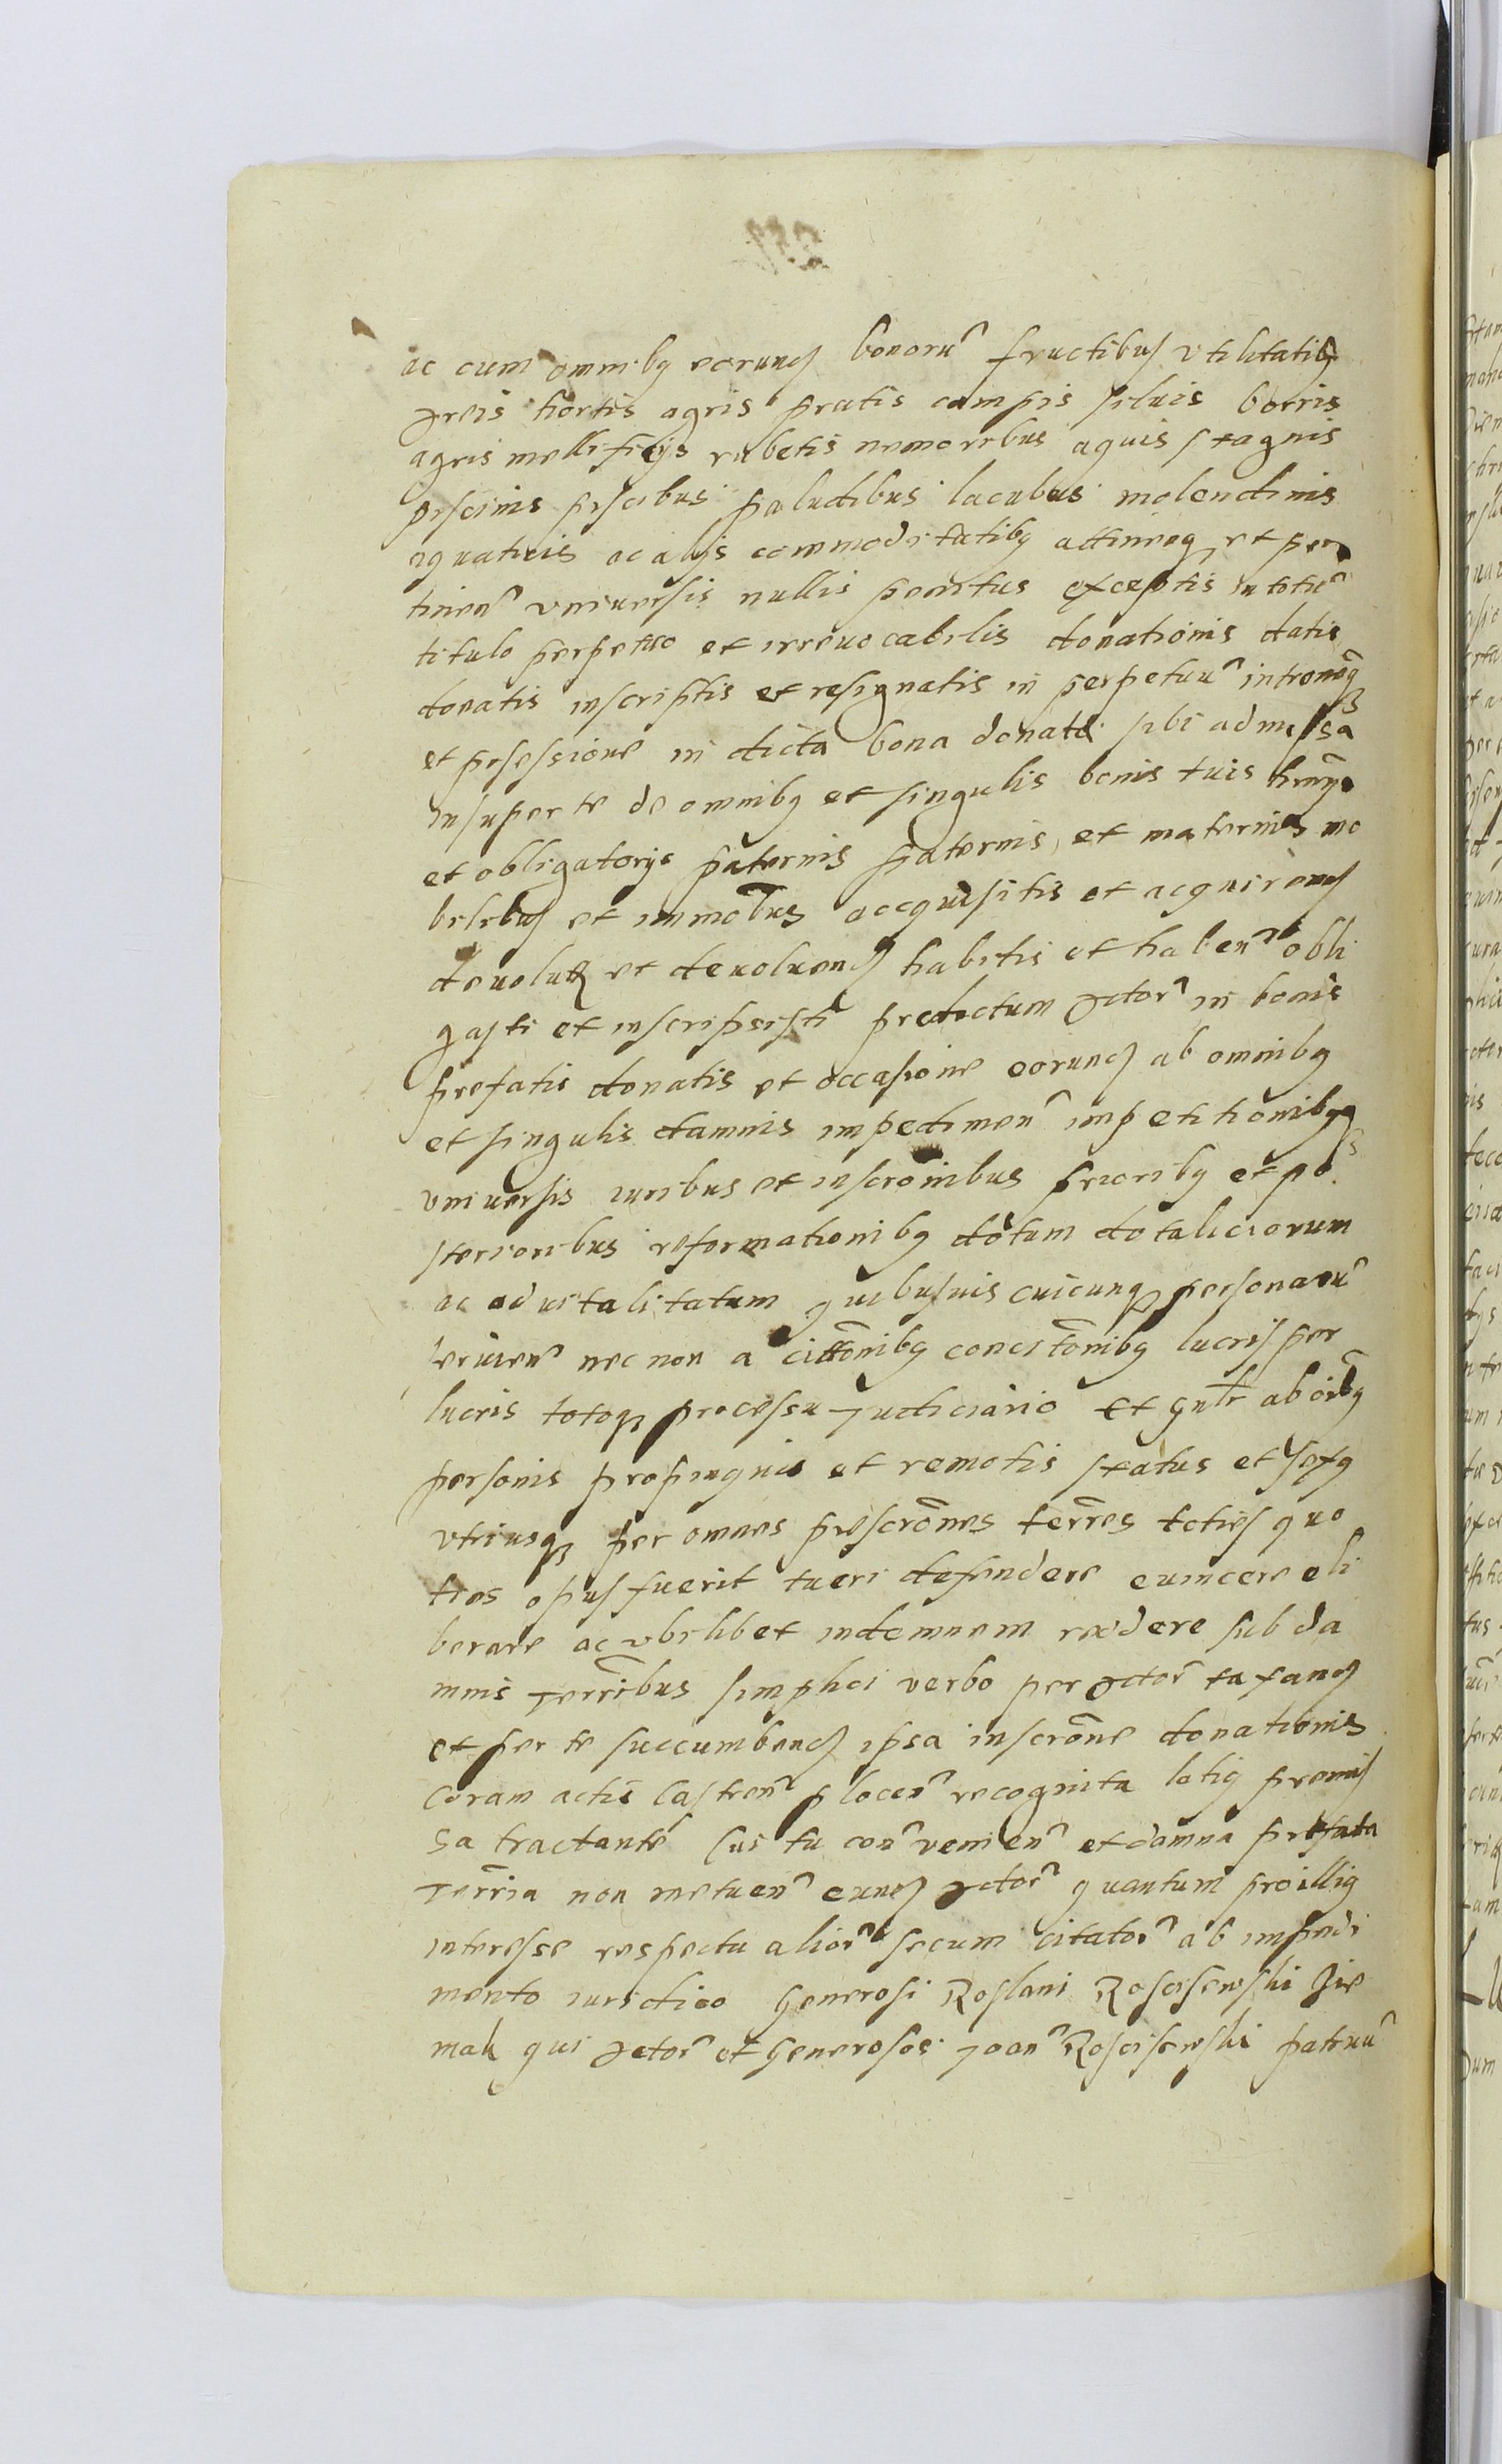 ac cum omnibq eorund bonoru fructibus vtilitatibq
areis hortis agris pratis campis siluis borris
agris mellificijs rubetis nemoribus aquis stagnis
piscinis piscibus paludibus lacubus molendinis
aquaticis ac alijs commoditatibq attineng et per
tinen vniuersis nullis penitus exceptis in totu
titulo perpetuo et irreuocabilis donationis datis
donatis inscriptis et resignatis in perpetuu
et possessione in dicta bona donata sibi admissa
Insuper te de omnibq et singulis bonis tuis
et obligatorijs paternis et maternis mo
bilibus et immobus accquisitis et acquirend
deuolut et deuoluend habitis et haben obli
gasti et inscripsisti predictum actor in bonis
prefatis donatis et occasione eorund ab omnibq
et singulis damnis impedimen impetitionibq
vniuersis iuribus et inscronibus prioribq et po
sterioribus reformationibq dotum dotaliciorum
ac aduitalitatum quibusuis cuicunq personaru
seruien nec non a cittonibq concitonibq lucris per
lucris totoq processu Judiciario et gnlr ab oibq
personis propinquis et remotis status et sexq
vtriusq per omnes prescrones terres toties quo
ties opus fuerit tueri defendere euincere eli
berare ac vbilibet indemnem reddere sub da
mnis Terribus simplici verbo per actor taxand
et per te succumbend ipsa inscrone donationis
Coram actis Castren plocen recognita latiq premis
sa tractante Cui tu con venien et damna prefata
Terria non metuen eund actor quantum pro illiq
interesse respectu alior secum citator ab impedi
mento iuridico Generosi Roslani Rosciszewski Zie
mak qui actor et Generosos Joan Rosciszewski patruu